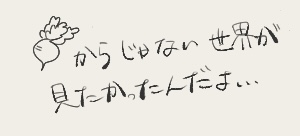 からじゃない世界が
見たかったんだよ…